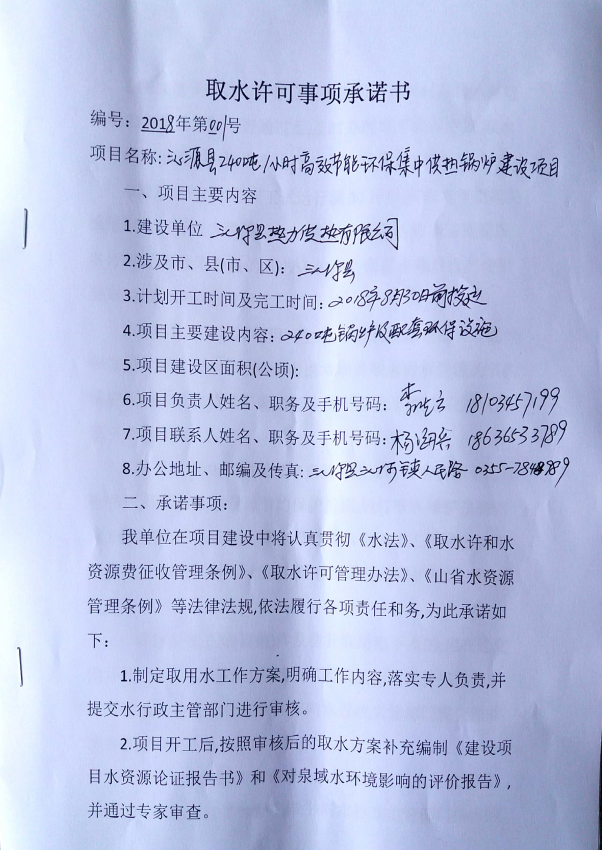 取水许可事项承诺书
编号：2018年第001号
项目名称:沁源县240吨/小时高效节能环保集中供热锅炉建设项目
一、项目主要内容
1.建设单位 沁源县热力供热有限公司
2.涉及市、县(市、区)：沁源县
3.计划开工时间及完工时间：2018年9月30日前投运
4.项目主要建设内容：240吨锅炉及配套环保设施
5.项目建设区面积(公顷):
6.项目负责人姓名、职务及手机号码：李 18103457199
7.项目联系人姓名、职务及手机号码: 杨 18636533789
8.办公地址、邮编及传真: 沁源县沁河镇人民路 0355-
二、承诺事项：
我单位在项目建设中将认真贯彻《水法》、《取水许和水
资源费征收管理条例》、《取水许可管理办法》、《山省水资源
管理条例》等法律法规,依法履行各项责任和务,为此承诺如
下：
1.制定取用水工作方案,明确工作内容,落实专人负责,并
提交水行政主管部门进行审核。
2.项目开工后,按照审核后的取水方案补充编制《建设项
目水资源论证报告书》和《对泉域水环境影响的评价报告》,
并通过专家审查。